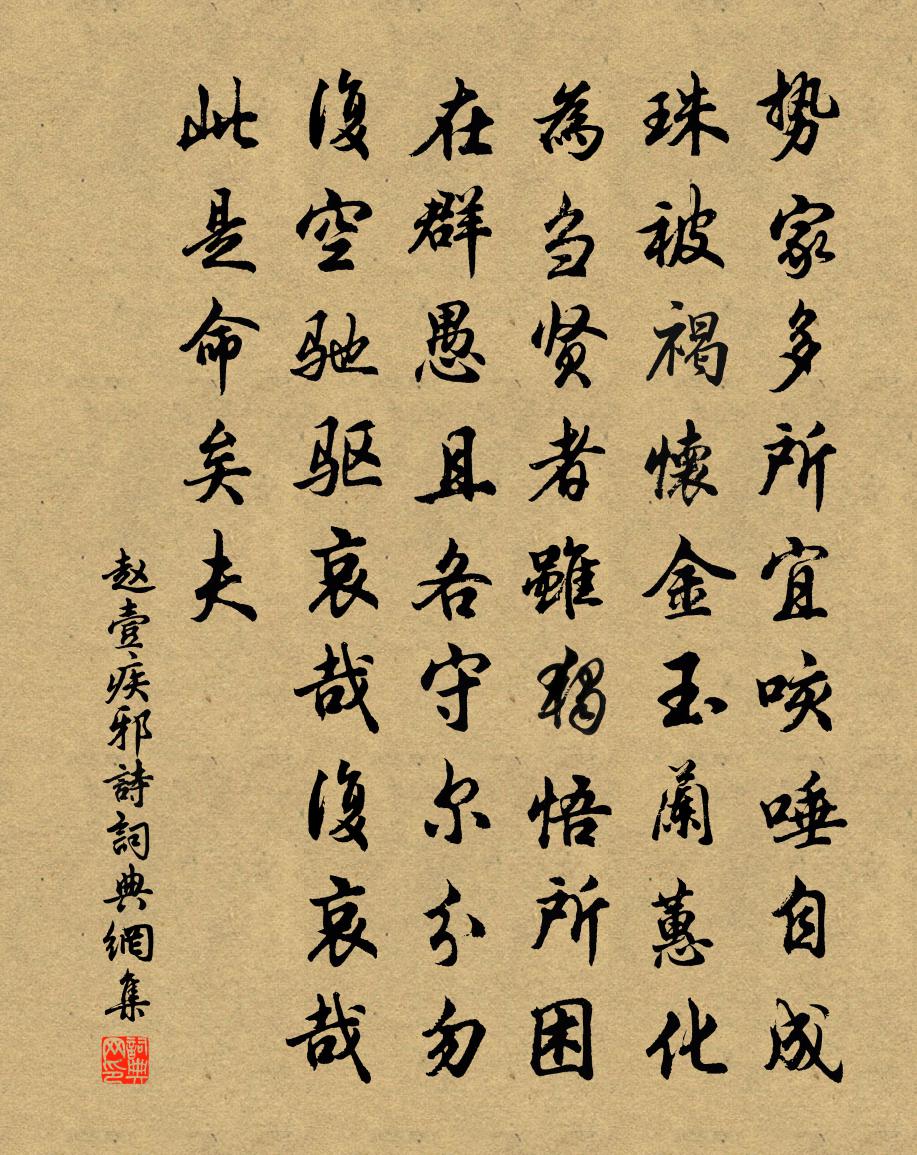 势家多所宜咳唾自成
珠被褐懷金玉蘭蕙化
為刍贤者雖獨悟所困
在群愚且各守尔分勿
復空驰驱哀哉復哀哉
此是命矣夫
赵壹疾邪詩詞典網集
詞典网印